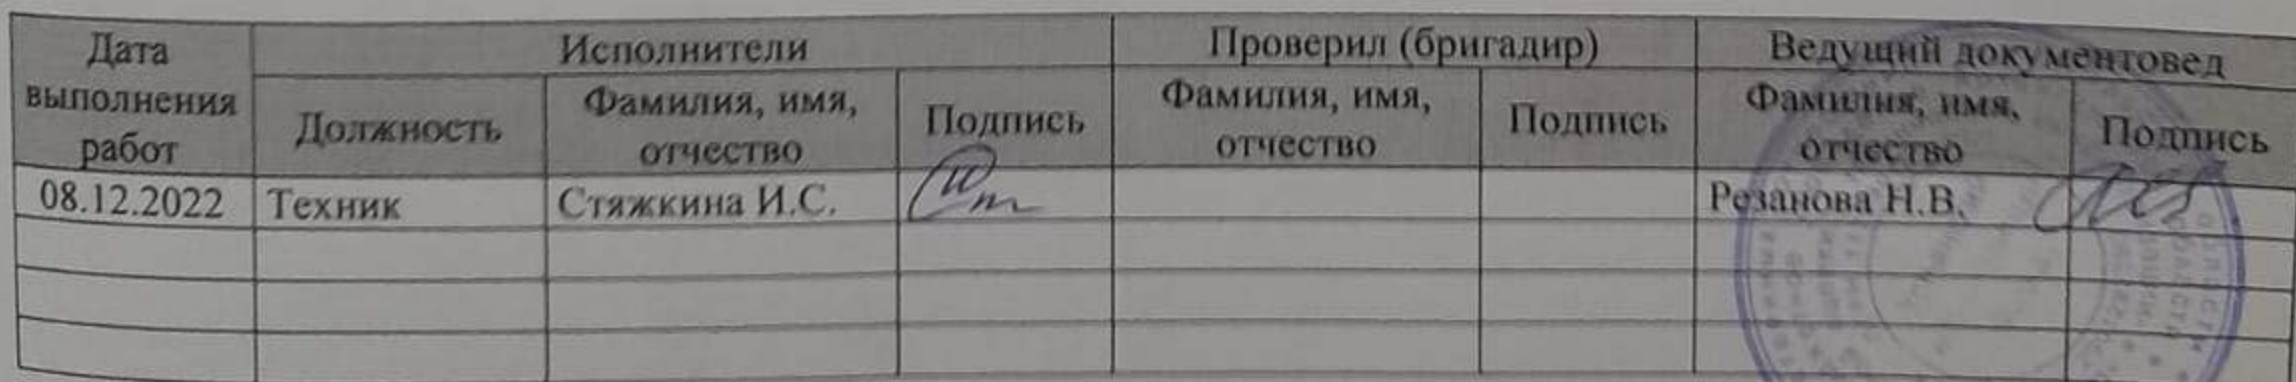 Дата выполнения работ Исполнители Проверил (бригадир) Ведущий документовед
Должность Фамилия, имя, отчество Подпись Фамилия, имя, отчество Подпись Фамилия, имя, отчество Подпись
08.12.2022 Техник Стяжкина И.С. Резанова Н.В.